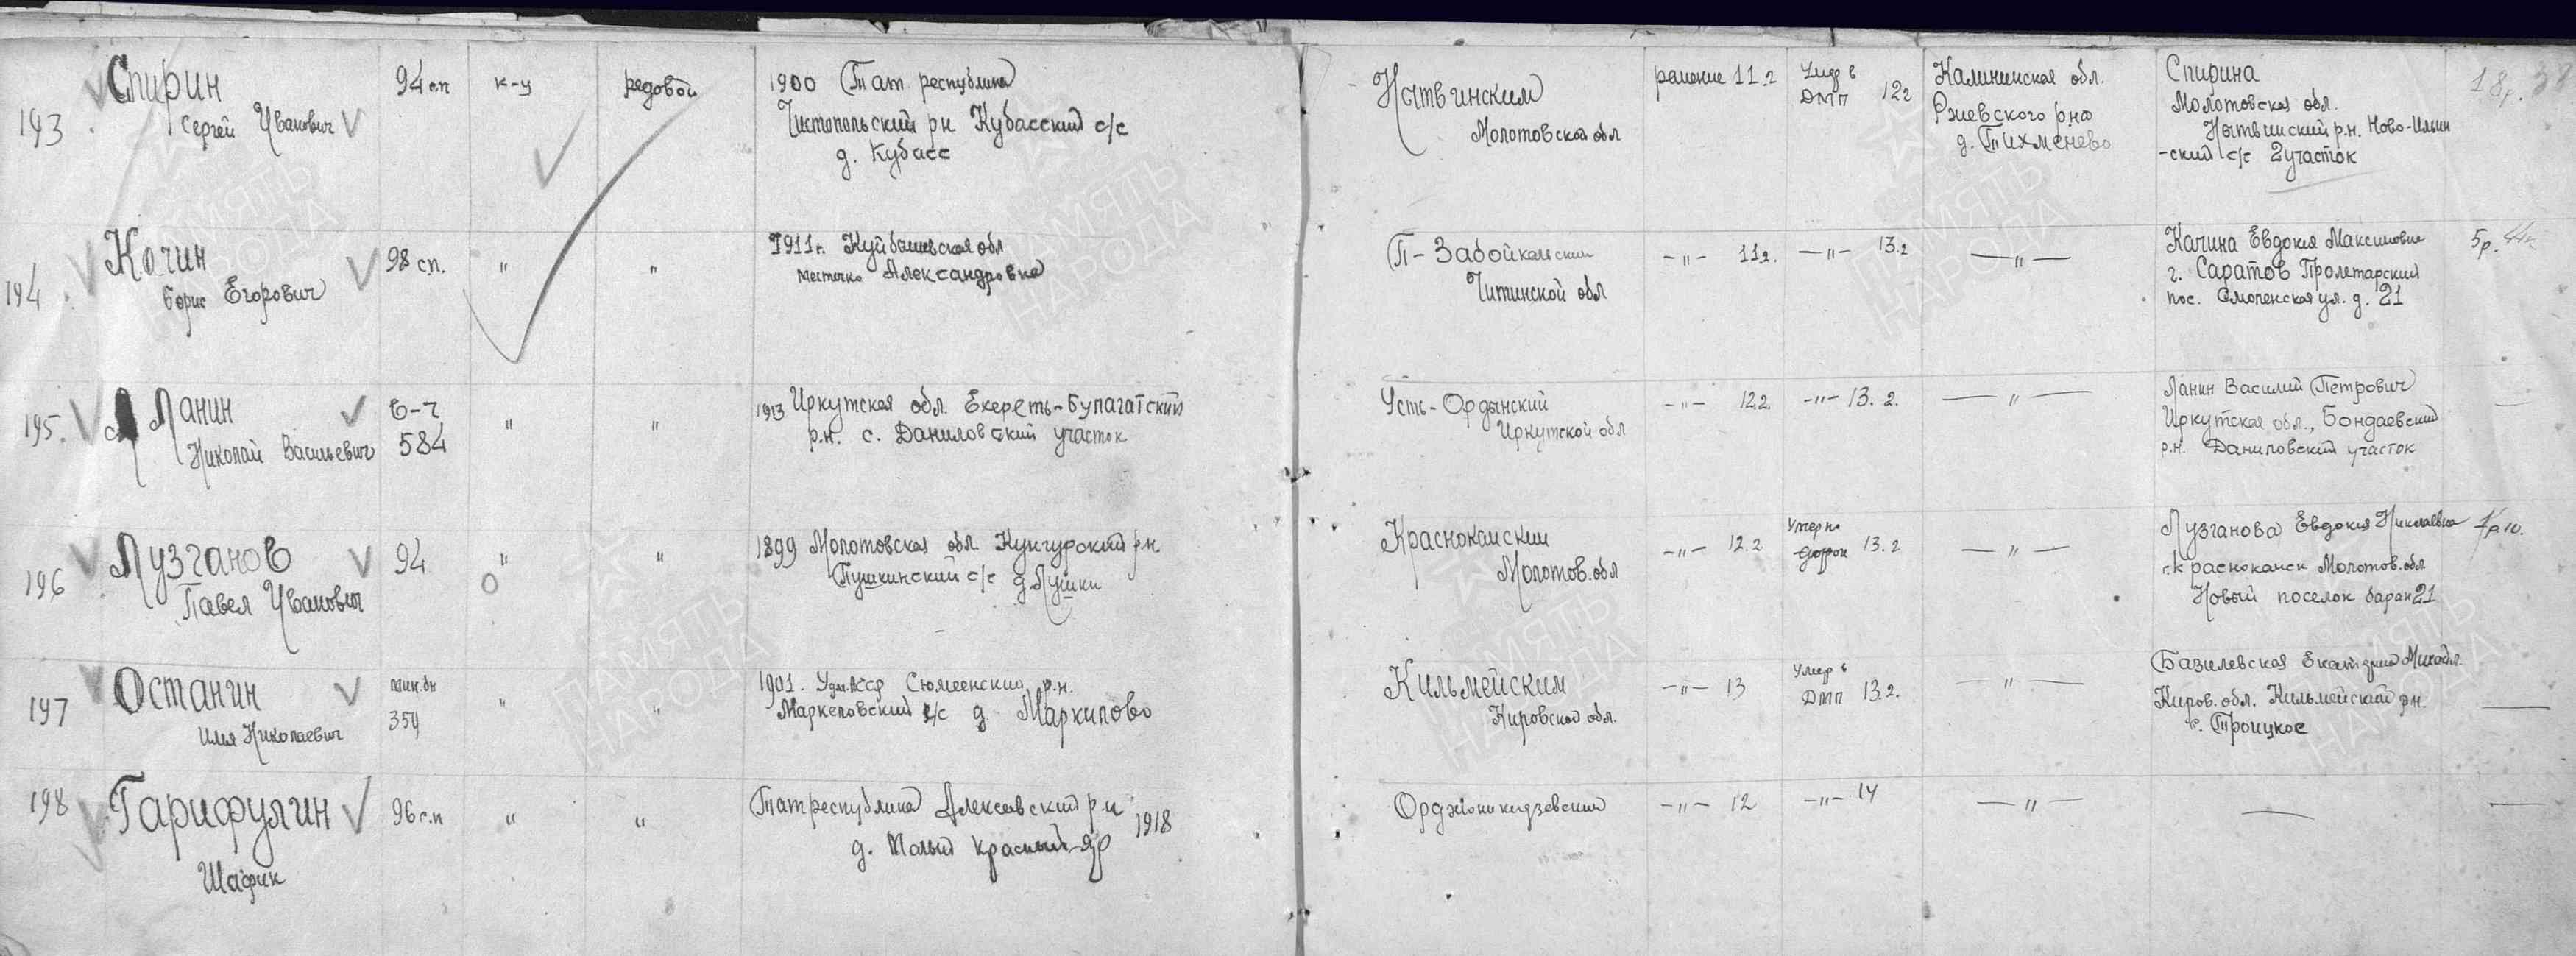 193 Спирин 94 сп к-у редовой 1900 Тат. республика Нытвинским ранение 11.2 Умер в 12.2 Калининская обл. Спирина 18р.
Сергей Иванович Чистопольский рн Кубасский с/с Молотовская обл ДМП Ржевского р.на Молотовская обл.
д. Кубасс д. Тихменево Нытвинский р.н. Ново-Ильин
-ский с/с 2 участок
194 Качин 98 сп. " " 1911г. Куйбышевская обл П-Забойкальским -"- 11.2. -"- 13.2 -"- Качина Евдокия Максимовна 5р.
Борис Егорович местечко Александровка Читинской обл г. Саратов Пролетарский
пос. Смоленская ул. д. 21
195. Ланин 584 " " 1913 Иркутская обл. Ехереть-Булагатский Усть-Ордынский -"- 12.2. -"- 13.2. -"- Ланин Василий Петрович —
Николай Васильевич р.н. с. Даниловский участок Иркутской обл Иркутская обл., Бондаевский
р.н. Даниловский участок
196 Лузганов 94 " " 1899 Молотовская обл. Кунгурский р.н. Краснокамским -"- 12.2 13.2 -"- Лузганова Евдокия Николаевна
Павел Иванович с/с Молотов.обл г.Краснокамск Молотов.обл
Новый поселок барак 21
197 Останин 354 " " 1901. Удм.АССР р.н. Кильмейским -"- 13 Умер в ДМП 13.2. -"- Базилевская Екатерина —
Илья Николаевич Маркеловский с/с д. Маркилово Кировской обл. Киров. обл. Кильмейский рн.
с. Троицкое
198 Гарифулин 96 с.п " " Татреспублика Алексеевский р.н 1918 Орджоникидзевским -"- 12 -"- 14 -"- — —
Шафик д. Малый Красный-Яр
ПАМЯТЬ
НАРОДА